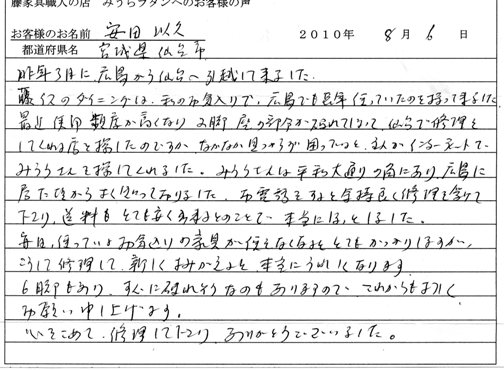 藤家具職人の店 みうらラタンへのお客様の声
お客様のお名前 安田 以久 2010年 8月 6日
都道府県名 宮城県仙台市
昨年3月に、広島から仙台へ引越して来ました。
藤イスのダイニングは、私のお気入りで、広島でも長年使っていたのを持って来ました
最近使用頻度が高くなり 2脚 座の部分が破れてしまって、仙台で修理を
してくれる店を探したのですが、なかなか見つからず困っていると、主人がインターネットで
みうらさんを探してくれました。みうらさんは平和大通りの角にあり、広島に
居た頃からよく知っておりました。お電話をすると気持良く修理を受けて
下さり、送料もとても安く出来るとのことで、本当にほっとしました。
毎日使っているお気入りの家具が使えなくなるととてもがっかりしますが、
こうして修理して、新しくよみがえると本当にうれしくなります。
6脚もあり、すぐに破れそうなのもありますので、これからもよろしく
お願い申し上げます。
心をこめて、修理して下さり、ありがとうございました。